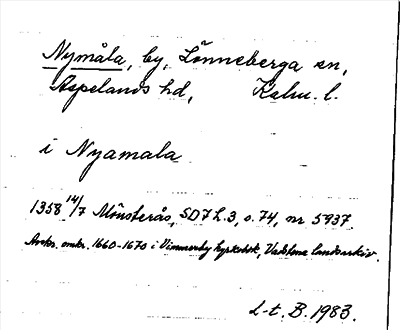 Nymåla, by, Lönneberga sn,
Aspelands hd, Kalm. l.
i Nyamala
1358 14/7 Mönsterås, SD 7 h. 3, s. 74, nr 5937.
Avskr. omkr. 1660-1670 i Vimmerby kyrkoark, Vadstena landsarkiv.
L-t. B. 1983.